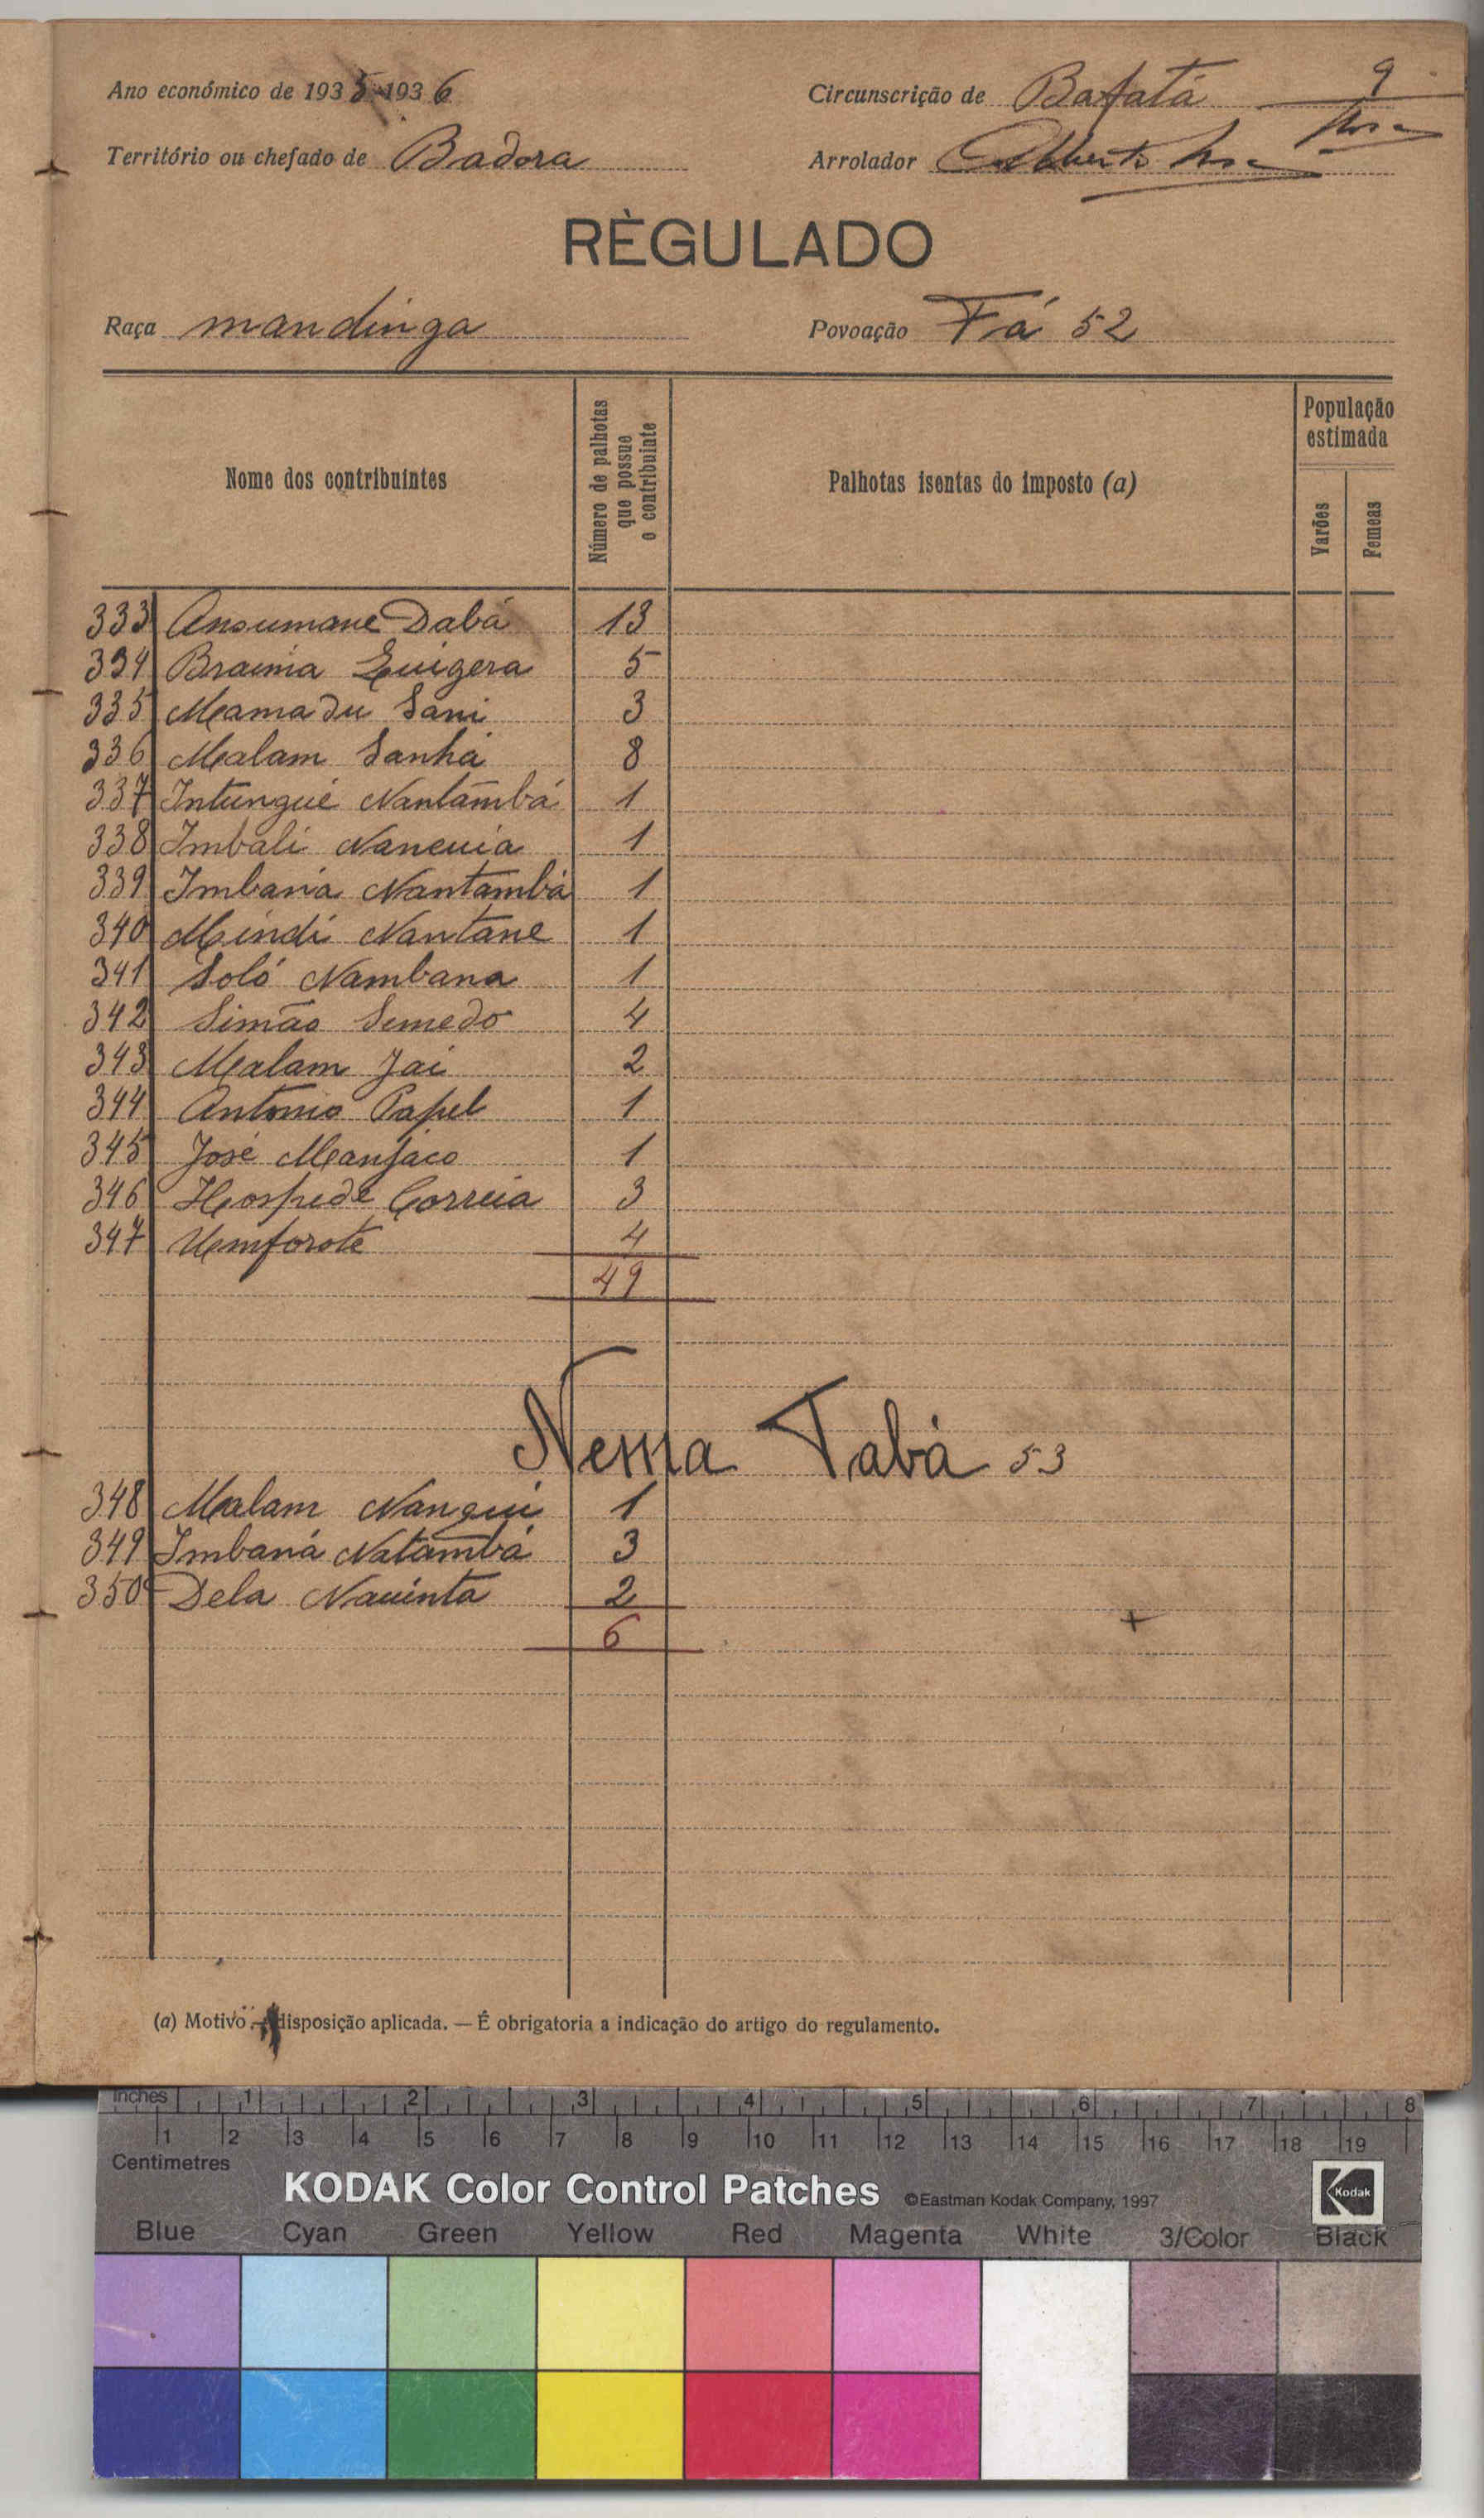 Ano económico de 1935-1936
Circunscrição de Bafatá
9
Território ou chefado de Badora
Arrolador Alberto
RÈGULADO
Raça mandinga
Povoação Fá 52
Nome dos contribuintes
Número de palhotas que possue o contribuinte
Palhotas isentas do imposto (a)
População estimada
Varões
Femeas
333 Ansumane Dabá 13
334 Braima 5
335 Mamadu Sani 3
336 Malam Sanhá 8
337 Intungué Nantambá 1
338 Imbali 1
339 Imbaná Nantambá 1
340 Mindi Nantane 1
341 Soló Nambana 1
342 Simão Semedo 4
343 Malam Jai 2
344 Antonio Papel 1
345 José Manjaco 1
346 Hospede Correia 3
347 4
49
Nema Tabá 53
348 Malam Nangui 1
349 Imbaná Natambá 3
350 Dela 2
6
(a) Motivo disposição aplicada. — É obrigatoria a indicação do artigo do regulamento.
Inches 1 2 3 4 5 6 7 8
1 2 3 4 5 6 7 8 9 10 11 12 13 14 15 16 17 18 19
Centimetres
KODAK Color Control Patches ©Eastman Kodak Company, 1997 Kodak
Blue Cyan Green Yellow Red Magenta White 3/Color Black